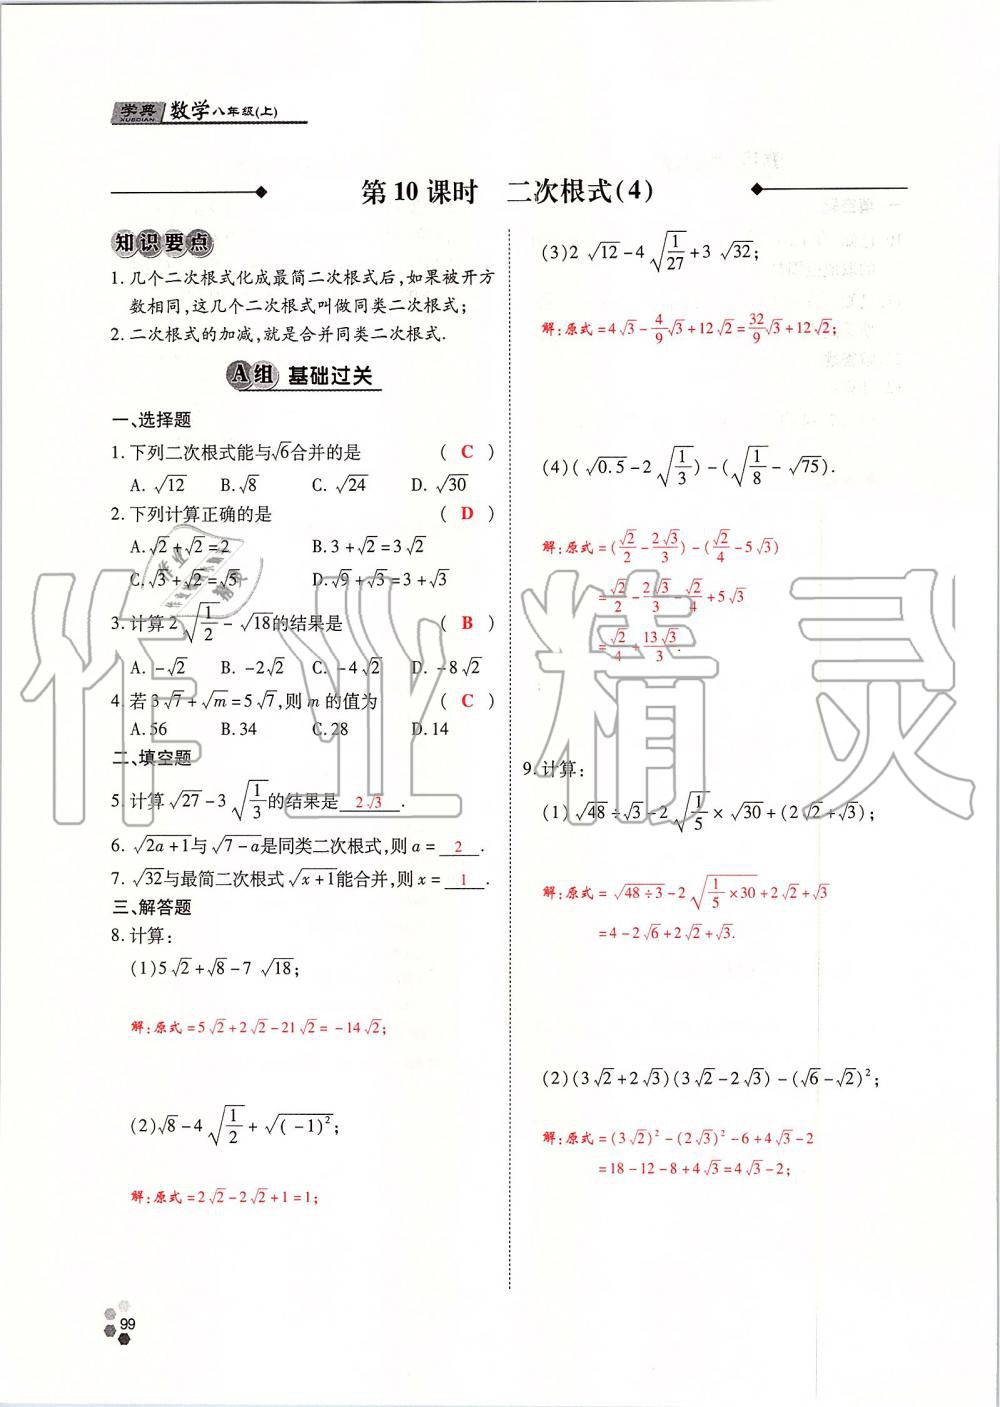 学典 数学八年级(上)
XUEDIAN
第10课时 二次根式(4)
知识要点
1.几个二次根式化成最简二次根式后,如果被开方
数相同,这几个二次根式叫做同类二次根式;
2.二次根式的加减,就是合并同类二次根式.
A组 基础过关
一、选择题
1.下列二次根式能与√6合并的是 ( C )
A. √12 B.√8 C. √24 D. √30
2.下列计算正确的是 ( D )
A.√2+√2=2 B.3+√2=3√2
C.√3+√2=√5 D.√9+√3=3+√3
3.计算2√(1/2)-√18的结果是 ( B )
A. -√2 B. -2√2 C. -4√2 D. -8√2
4.若3√7+√m=5√7,则m的值为 ( C )
A.56 B.34 C.28 D.14
二、填空题
5.计算√27-3√(1/3)的结果是 2√3 .
6. √(2a+1)与√(7-a)是同类二次根式,则a= 2 .
7. √32与最简二次根式√(x+1)能合并,则x= 1 .
三、解答题
8.计算:
(1)5√2+√8-7√18;
解:原式=5√2+2√2-21√2=-14√2;
(2)√8-4√(1/2)+√((-1)²);
解:原式=2√2-2√2+1=1;
(3)2√12-4√(1/27)+3√32;
解:原式=4√3-(4/9)√3+12√2=(32/9)√3+12√2;
(4)(√0.5-2√(1/3))-(√(1/8)-√75).
解:原式=(√2/2-2√3/3)-(√2/4-5√3)
=√2/2-2√3/3-√2/4+5√3
=√2/4+13√3/3.
9.计算:
(1)√48÷√3-2√(1/5)×√30+(2√2+√3);
解:原式=√(48÷3)-2√(1/5×30)+2√2+√3
=4-2√6+2√2+√3.
(2)(3√2+2√3)(3√2-2√3)-(√6-√2)²;
解:原式=(3√2)²-(2√3)²-6+4√3-2
=18-12-8+4√3=4√3-2;
99
作业精灵